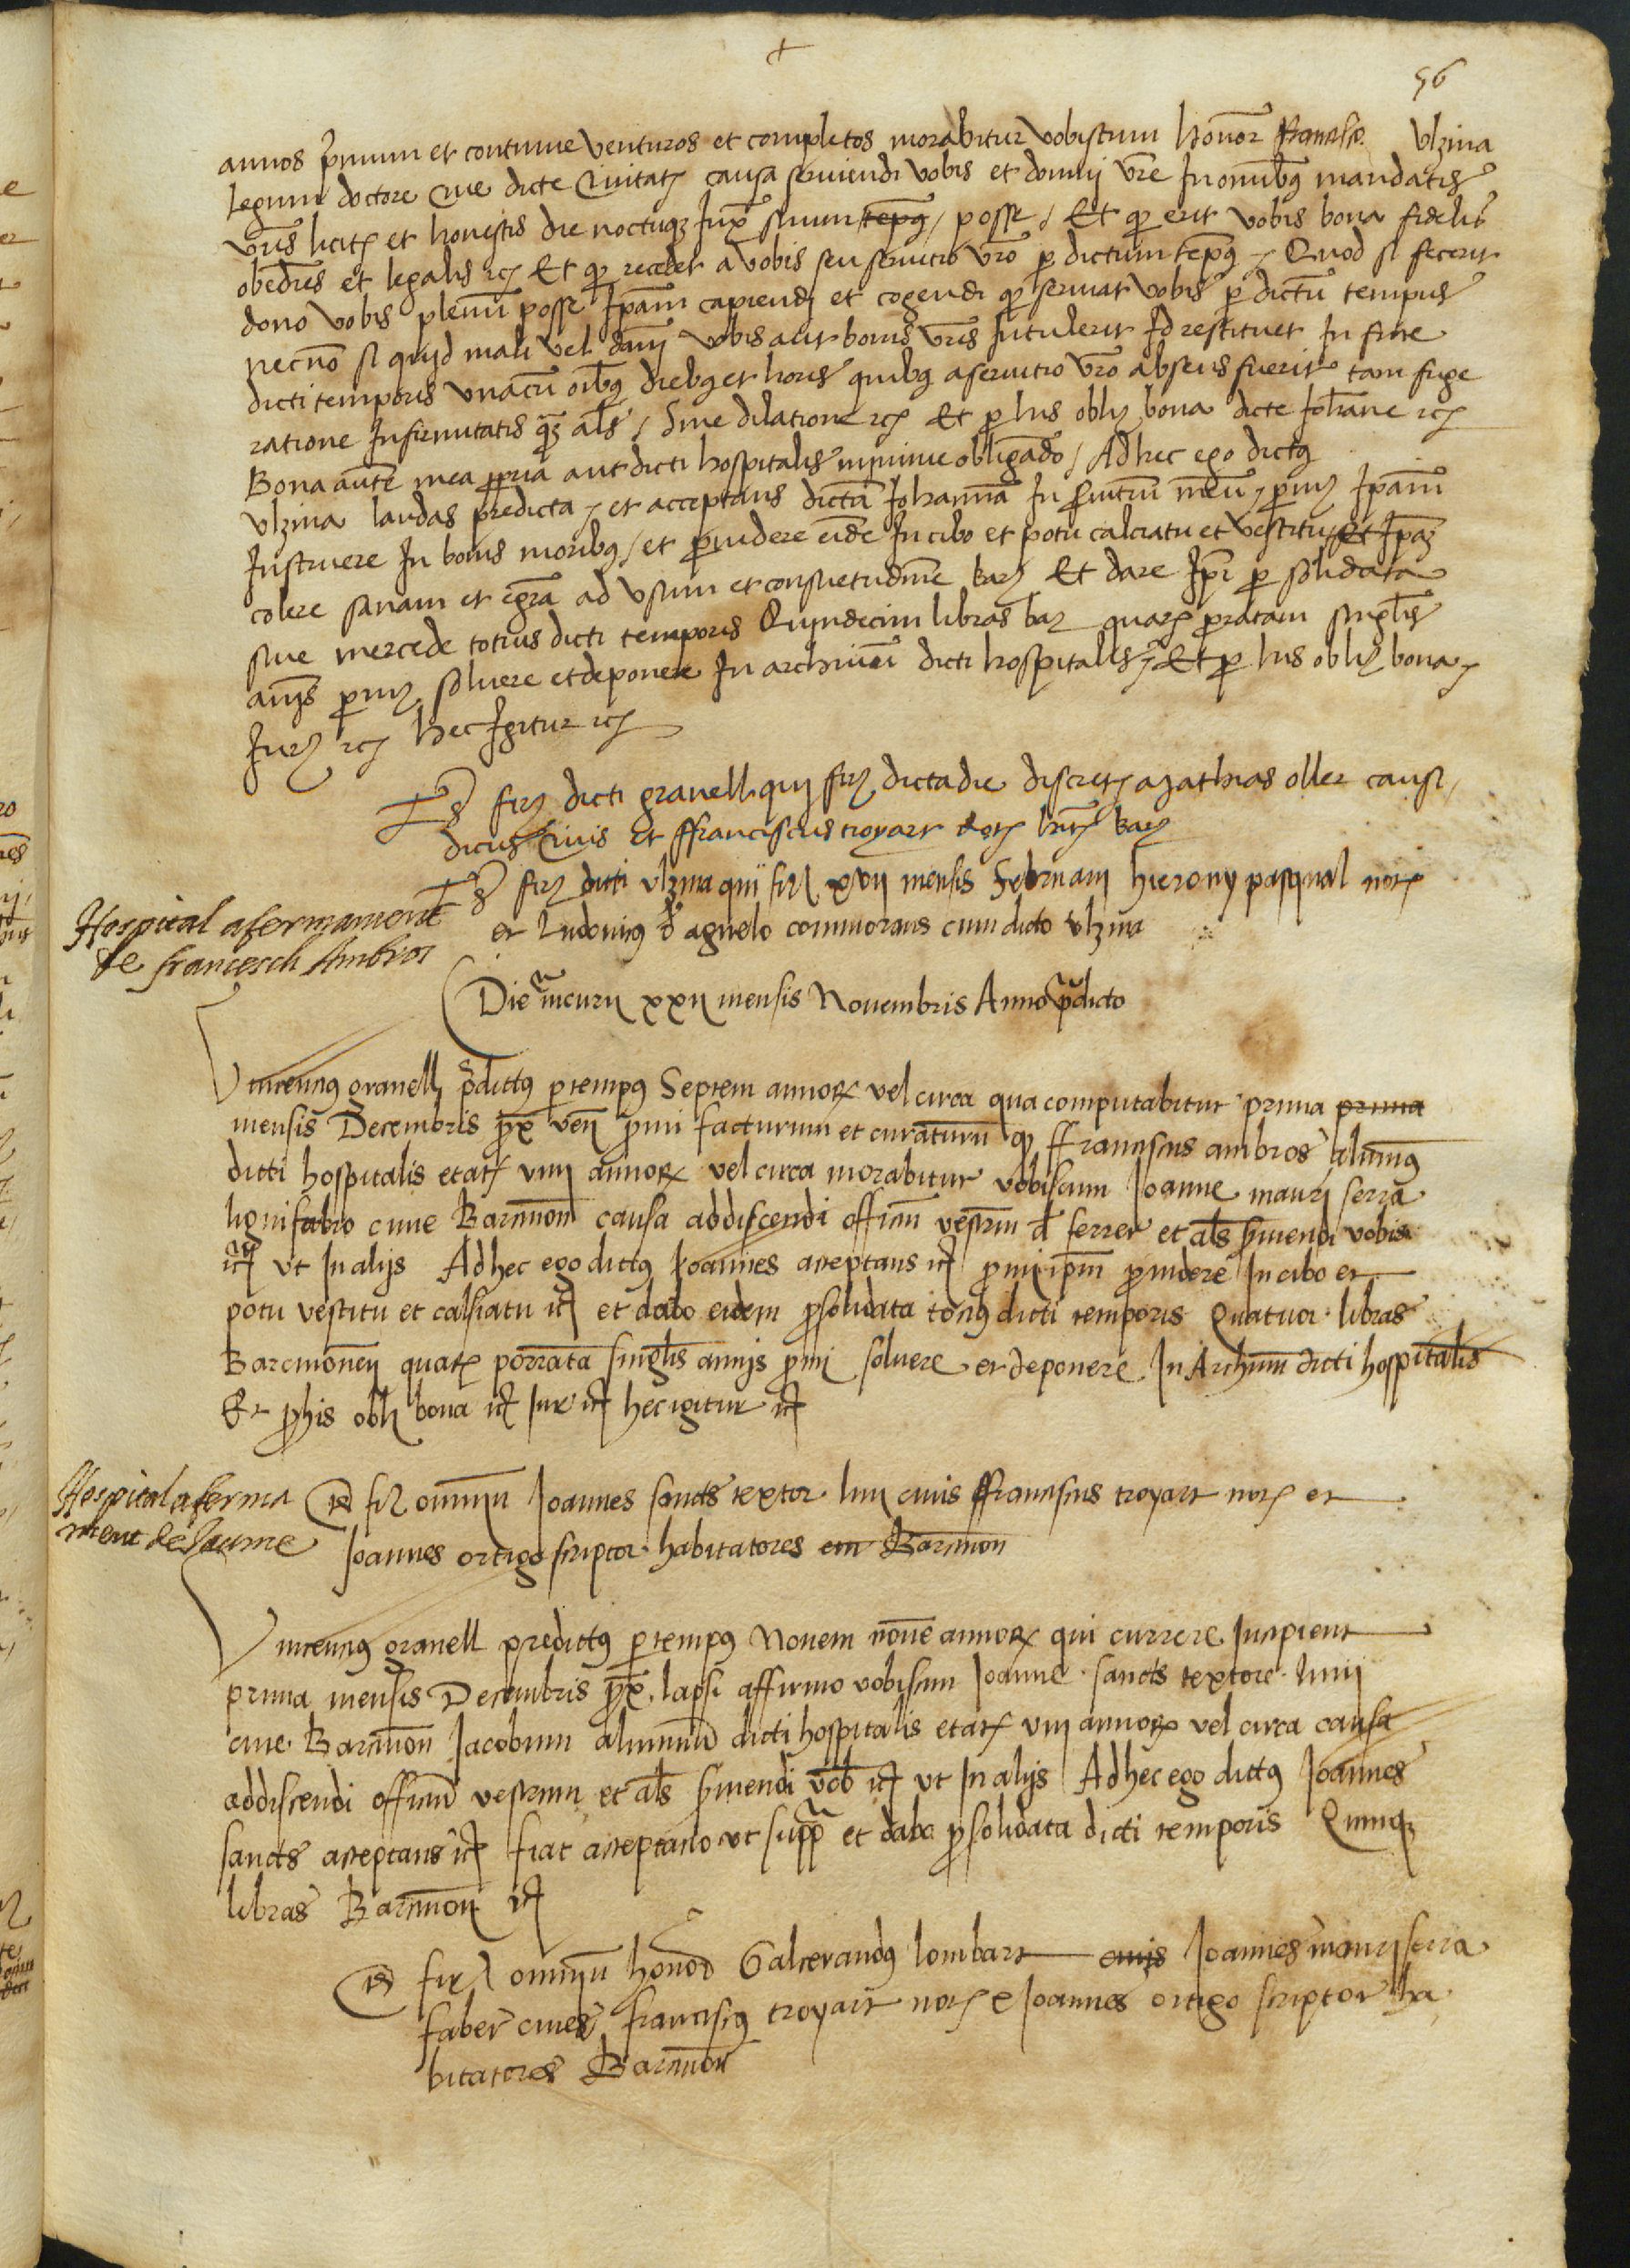 +
56
annos primum et continue venturos et completos morabitur vobiscum honor. Vlzina
legum doctore cive dicte Civitatis causa serviendi vobis et domui vre In omnibus mandatis
vris licitis et honestis die noctuque Iux suum tempus / posse / Et quod erit vobis bona fidelis
obediens et legalis etc Et quod recedet a vobis seu servitio vro per dictum tempus Quod si fecerit
dono vobis plenum posse Ipsam capiendi et cogendi quod serviat vobis per dictum tempus
necno si quid mali vel damni vobis aut bonis vris Intulerit Id restituet In fine
dicti temporis unacum oibus diebus et horis quibus a servitio vro absens fuerit tam fuge
ratione Infirmitatis quam als / Sine dilatione etc Et pro his oblig bona dicte Iohane etc
Bona autem mea propria aut dicti hospitalis minime obligado / Ad hec ego dictus
Vlzina laudas predicta et acceptans dictam Iohannam In servitium meum promitto Ipsam
Instruere In bonis moribus / et providere eide In cibo et potu calciatu et vestitu et Ipsam
colere sanam et egram ad usum et consuetudinem Bar Et dare Ipsi pro solidata
sive mercede totius dicti temporis Quindecim libras bar quas pro ratam singlis
annis promitto solvere et deponere In archivium dicti hospitalis Et pro his oblig bona
Iur etc hec Igitur etc
Ts firm dicti granell qui firm dicta die discret agathias oller causi
dicus Civis et ffranciscus troyart not habit Bar
Ts firm dicti Vlzina qui firm xvii mensis Februarii hierony pasqual not
et Ludovicus d agnelo commorans cum dicto Vlzina
Hospital afermament
de francesch Ambros
Die mercurii xxii mensis Novembris Anno predicto
Vincencius granell predictus per tempus Septem annorum vel circa qua computabitur prima prima
mensis Decembris prox ven promi facturum et curaturum quod ffranciscus ambros alumnus
dicti hospitalis etatis viiii annorum vel circa morabitur vobiscum Ioanne mauri serra
lignifabro cive Barcinon causa addiscendi officium vestrum d ferrer et als serviendi vobis
etc ut In alijs Ad hec ego dictus Joannes acceptans etc promi ipsum providere In cibo et
potu vestitu et calsiatu etc et dabo eidem pro solidata tocius dicti temporis Quatuor libras
Barcinonen quas porrata singlis annijs promi solvere et deponere In Archivum dicti hospitalis
Et pro his obli bona etc Iur etc hec igitur etc
Hospital aferma
ment de Jaume
Ts fir omnium Ioannes sancts textor lini civis ffranciscus troyart not et
Ioannes ortigo scriptor habitatores em Barcinon
Vincencius granell predictus per tempus Novem novem annorum qui currere Incipient
prima mensis Decembris prox lapsi affirmo vobiscum Ioanne sancts textore linij
cive Barcinon Jacobum alumnum dicti hospitalis etatis viii annorum vel circa causa
addiscendi officium vestrum et als serviendi vob etc ut In alijs Ad hec ego dictus Ioannes
sancts acceptans etc fiat acceptatio ut supra et dabo pro solidata dicti temporis Quinque
libras Barcinon etc
Ts firm omnium honor Galcerandus lombart civis Ioannes mauri serra
faber cives franciscus troyart not e Ioannes ortigo scriptor ha
bitatores Barcinon